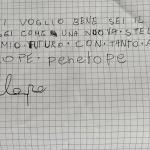 I VOGLIO BENE SEI IL
COME UNA NUOVA STEL
MIO FUTURO CON TANTO A
LOPE penelope